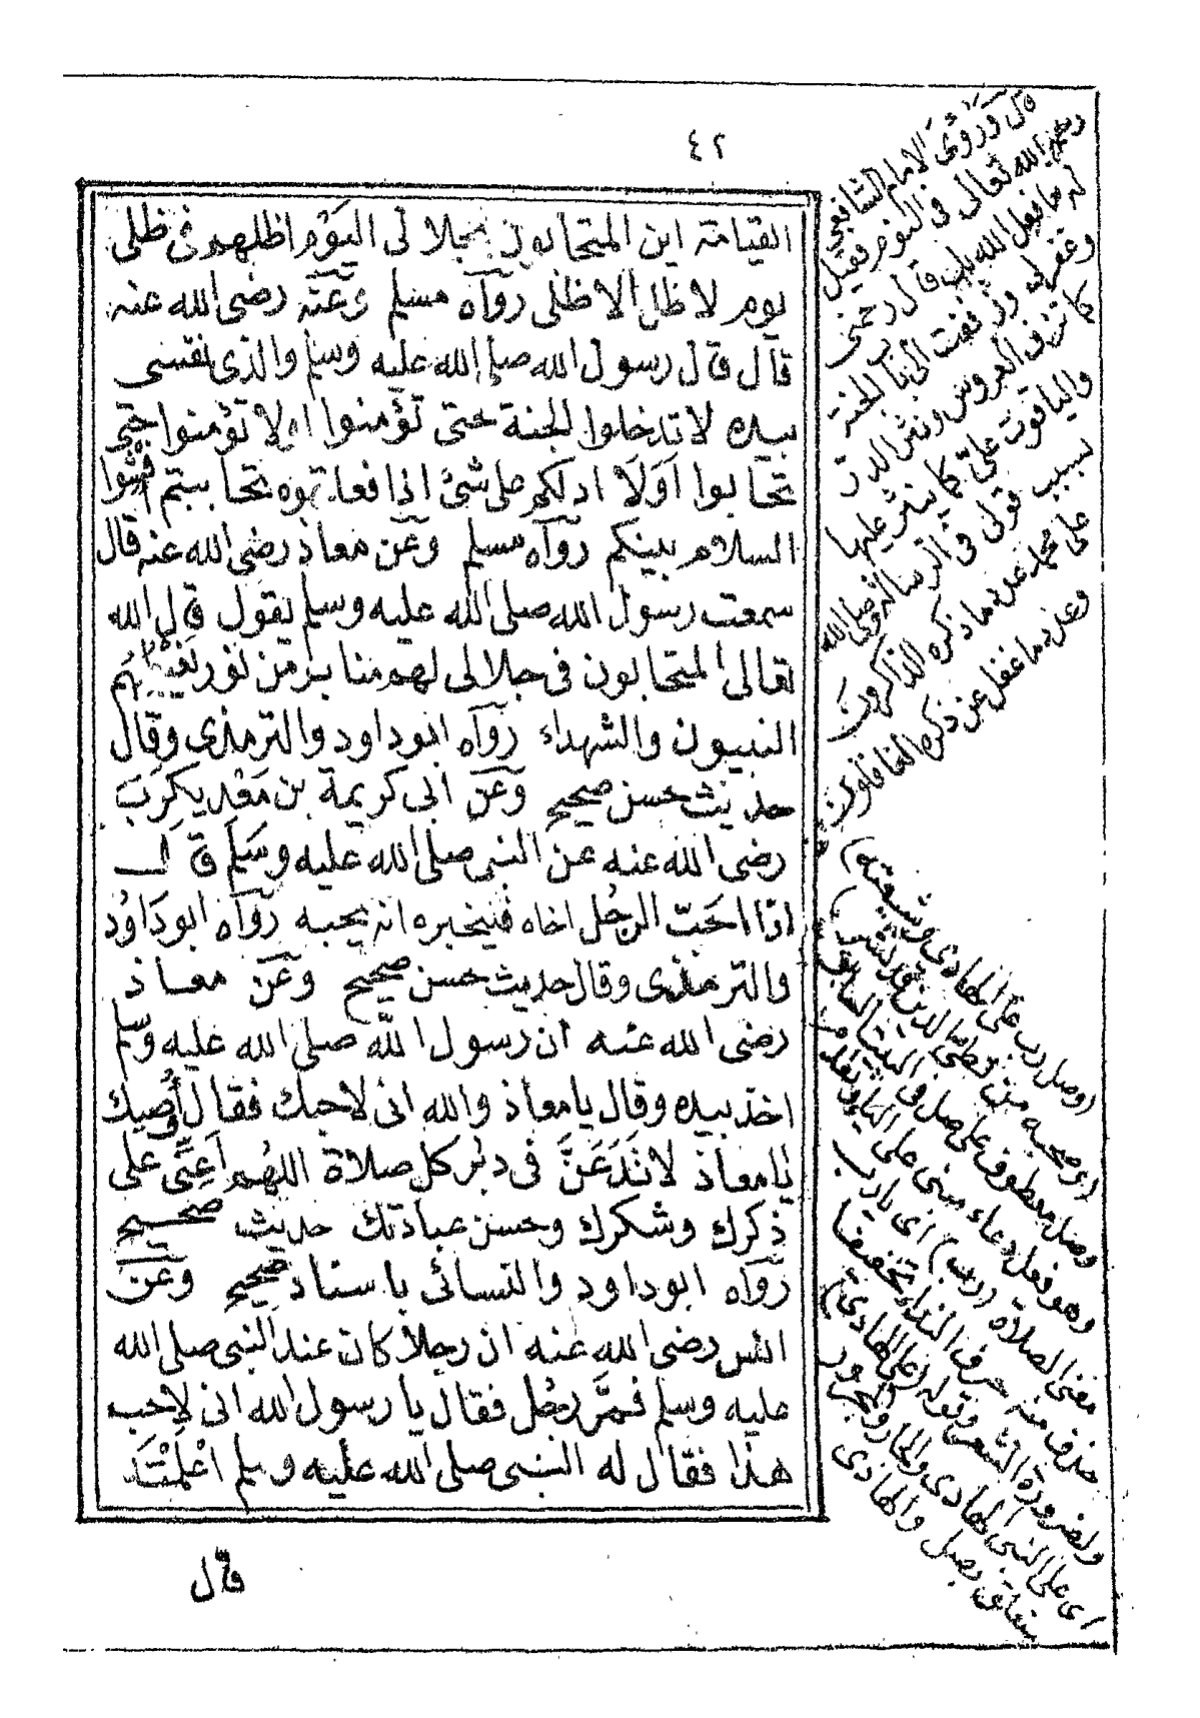 ٤٢
القيامة اين المتحابون بجلالى اليَوْم اظلهم فى ظلى
يوم لا ظل الا ظلى روَآه مسلم وَعَنْه رضى الله عنه
قال قال رسول الله صلى الله عليه وسلم والذى نفسى
بيده لا تدخلوا الجنة حتى تؤمنوا ولا تؤمنوا حتى
تحابوا اَوَلَا ادلكم على شئ اذا فعلتموه تحاببتم افشوا
السلام بينكم روَآه مسلم وَعَن معاذ رضى الله عنه قال
سمعت رسول الله صلى الله عليه وسلم يقول قال الله
تعالى المتحابون فى جلالى لهم منابر من نور يَغْبِطُهُم
النبيون والشهداء روَآه ابو داود والترمذى وقال
حديث حسن صحيح وَعَن ابى كريمة بن مَعْديكَرَبَ
رضى الله عنه عن النبى صلى الله عليه وَسَلم قال
اذا احَبّ الرجُل اخاه فليخبره انه يحبه روَآه ابو دَاوُد
والترمذى وقال حديث حسن صحيح وَعَن معاذ
رضى الله عنه ان رسول الله صلى الله عليه وسلم
اخذ بيده وقال يا معاذ والله انى لاحبك فقال أُوصيك
يا معاذ لا تَدَعَنَّ فى دبُر كل صلاة اللهُم اَعِنِّى على
ذكرك وشكرك وحسن عبادتك حديث صحيح
روَآه ابو داود والنسائى باسناد صحيح وَعَن
انس رضى الله عنه ان رجلا كان عند النبى صلى الله
عليه وسلم فمَرَّ رجُل فقال يا رسول الله انى لاحب
هذا فقال له النبى صلى الله عليه وسلم اعْلَمْتَه
قال
قال وَرُؤىَ الامام الشافعى
رحمه الله تعالى فى النوم فقيل
له ما فعل الله بك قال رحمنى
وغفر لى وزففت الى الجنة
كما تزف العروس ونثر الدر
والياقوت علىّ كما ينثر عليها
بسبب قولى فى الرسالة وصلى الله
على محمد عدد ما ذكره الذاكرون
وعدد ما غفل عن ذكره الغافلون
(وصل رب على الهادى وشيعته)
(وصحبه من لطى الدين قد نشروا)
وصل معطوف على صل فى البيت السابق
وهو فعل دعاء مبنى على الياء وتقدم
معنى الصلاة (رب) اى يارب
حذف منه حرف النداء تخفيفا
ولضرورة الشعر وقوله (على الهادى)
اى على النبى الهادى والجار والمجرور
متعلق بصل والهادى